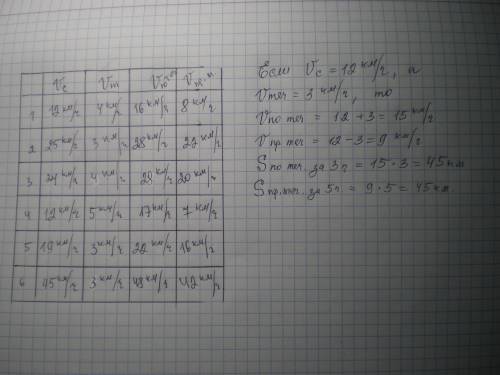 Vс Vт Vпо Vпр.
1 12 км/ч 4 км/ч 16 км/ч 8 км/ч
2 25 км/ч 3 км/ч 28 км/ч 22 км/ч
3 24 км/ч 4 км/ч 28 км/ч 20 км/ч
4 12 км/ч 5 км/ч 17 км/ч 7 км/ч
5 19 км/ч 3 км/ч 22 км/ч 16 км/ч
6 45 км/ч 3 км/ч 48 км/ч 42 км/ч
Если Vс = 12 км/ч, а
Vтеч = 3 км/ч, то
Vпо теч = 12 + 3 = 15 км/ч
Vпр.теч = 12 - 3 = 9 км/ч
Sпо теч. за 3ч = 15 · 3 = 45 км
Sпр.теч. за 5ч = 9 · 5 = 45 км.